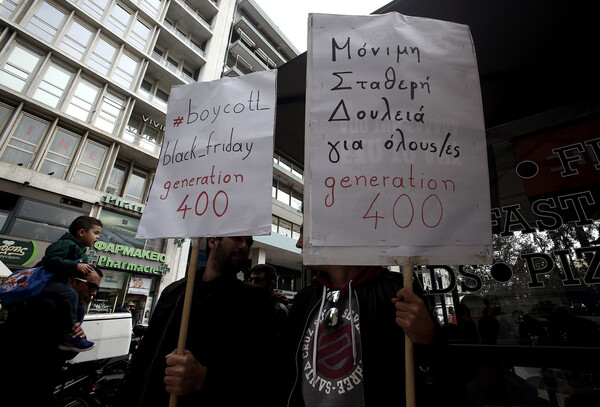 #boycott
black_friday
generation
400
Μόνιμη
Σταθερή
Δουλειά
για όλους/ες
generation
400
ΦΑΡΜΑΚΕΙΟ
Pharmacy
VIVI
FAST
PIZ
SANTA CRUZ
THREE